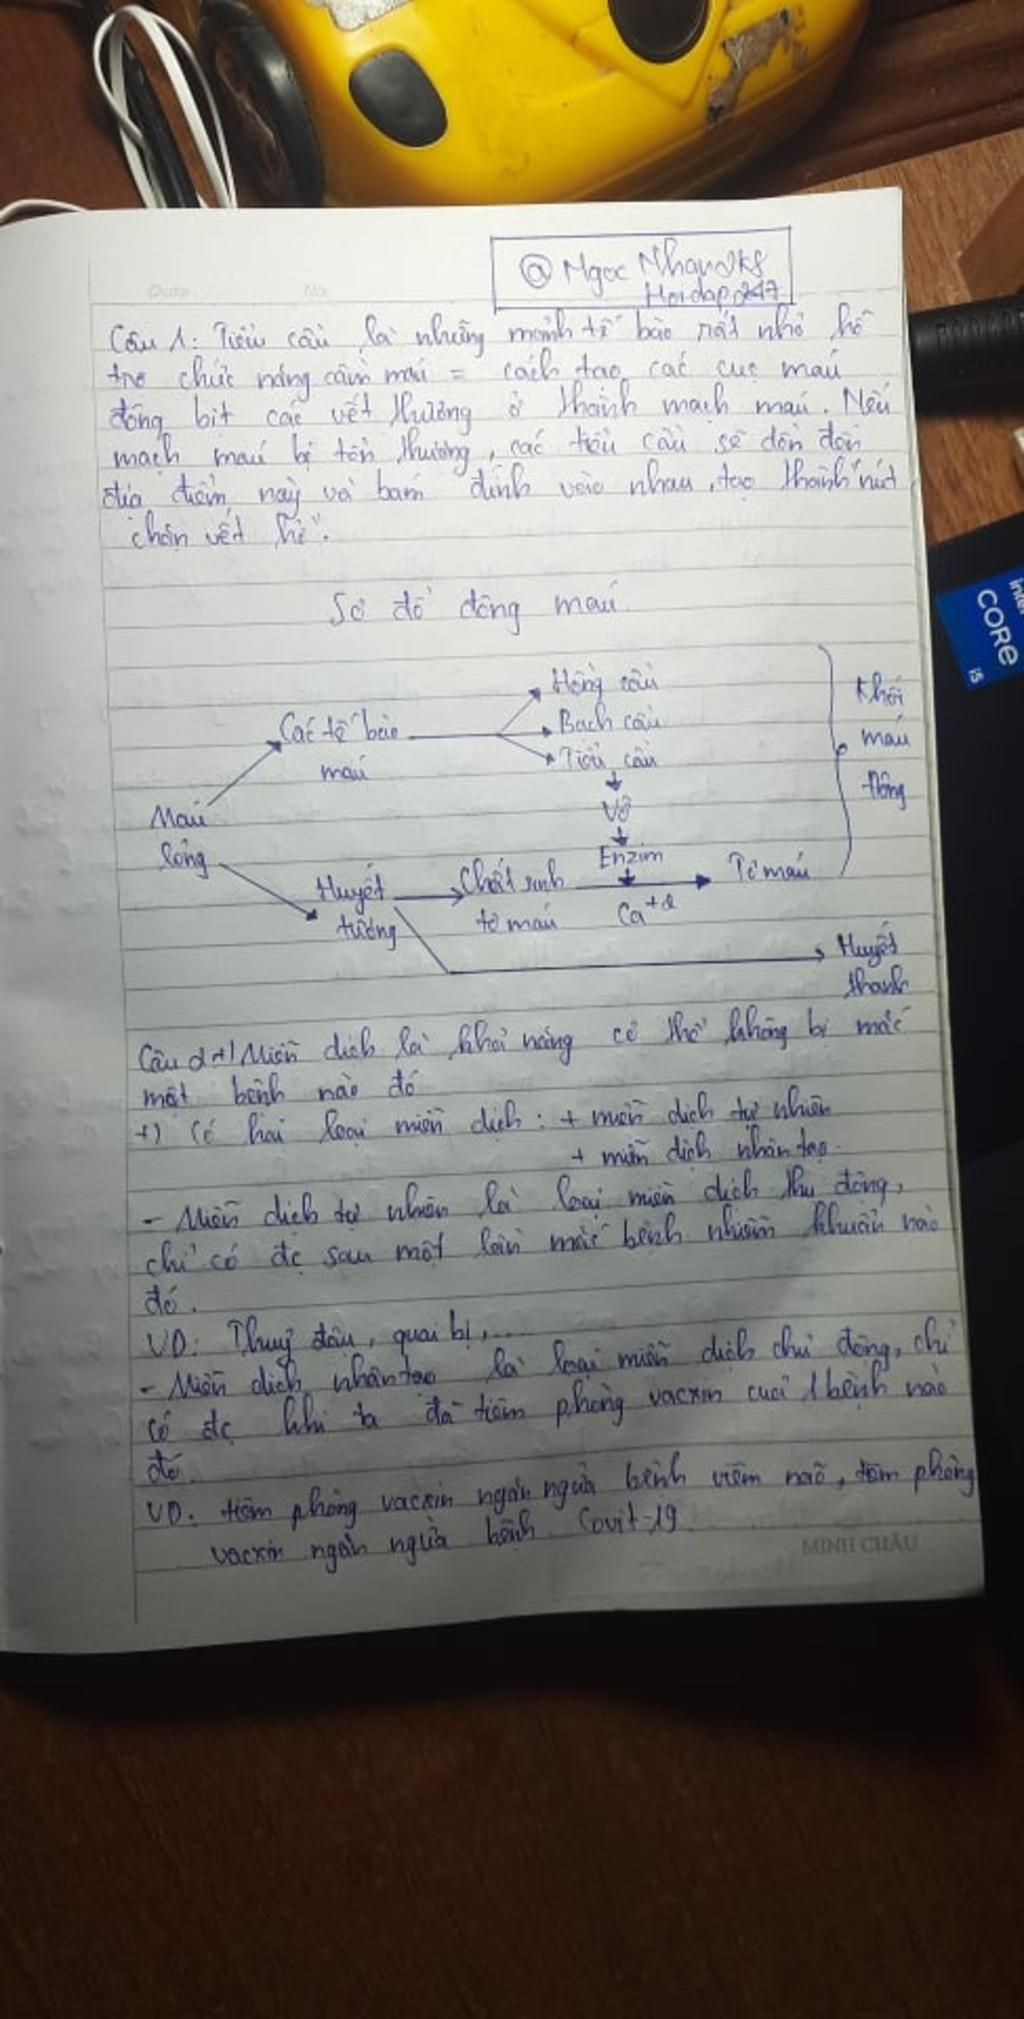 @ Ngoc Nhan2k8
Hoidap247
Câu 1: Tiểu cầu là những mảnh tế bào rất nhỏ hỗ
trợ chức năng cầm máu = cách tạo các cục máu
đông bịt các vết thương ở thành mạch máu. Nếu
mạch máu bị tổn thương, các tiểu cầu sẽ dồn đến
địa điểm này và bám dính vào nhau, tạo thành "nút
chặn vết hở".
Sơ đồ đông máu
Hồng cầu
Các tế bào
máu
Bạch cầu
Tiểu cầu
Khối
máu
đông
Vỡ
Máu
lỏng
Enzim
Huyết
tương
Chất sinh
tơ máu
Ca+2
Tơ máu
Huyết
thanh
Câu 2 +) Miễn dịch là khả năng cơ thể không bị mắc
một bệnh nào đó
+) Có hai loại miễn dịch: + miễn dịch tự nhiên
+ miễn dịch nhân tạo.
- Miễn dịch tự nhiên là loại miễn dịch thụ động,
chỉ có đc sau một lần mắc bệnh nhiễm khuẩn nào
đó.
VD: Thuỷ đậu, quai bị,....
- Miễn dịch nhân tạo là loại miễn dịch chủ động, chỉ
có đc khi ta đã tiêm phòng vacxin của 1 bệnh nào
đó.
VD: tiêm phòng vacxin ngăn ngừa bệnh viêm não, tiêm phòng
vacxin ngăn ngừa bệnh Covit-19.
MINH CHÂU
Date
No.
intel
CORE
i5